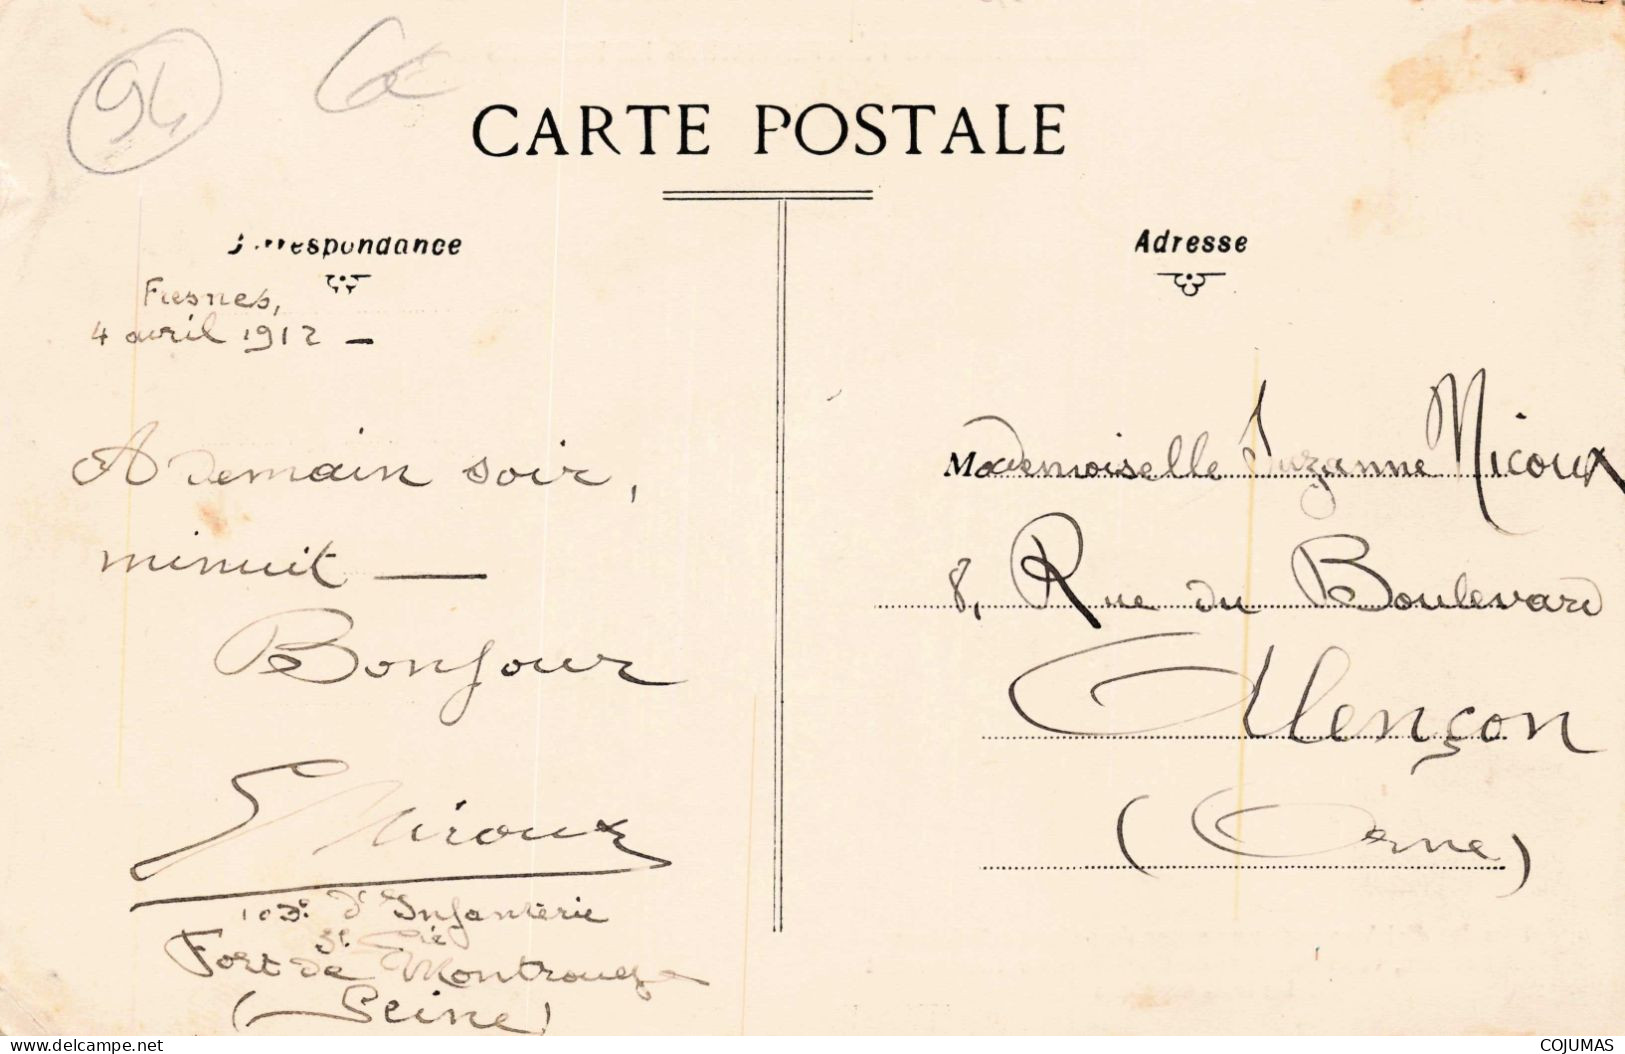 94
CARTE POSTALE
Correspondance
Fresnes,
4 avril 1912 —
A demain soir,
minuit —
Bonjour
103e d'Infanterie
3e Cie
Fort de Montrouge
(Seine)
Adresse
Mademoiselle Suzanne Nicoux
8, Rue du Boulevard
Alençon
(Orne)
www.delcampe.net
COJUMAS